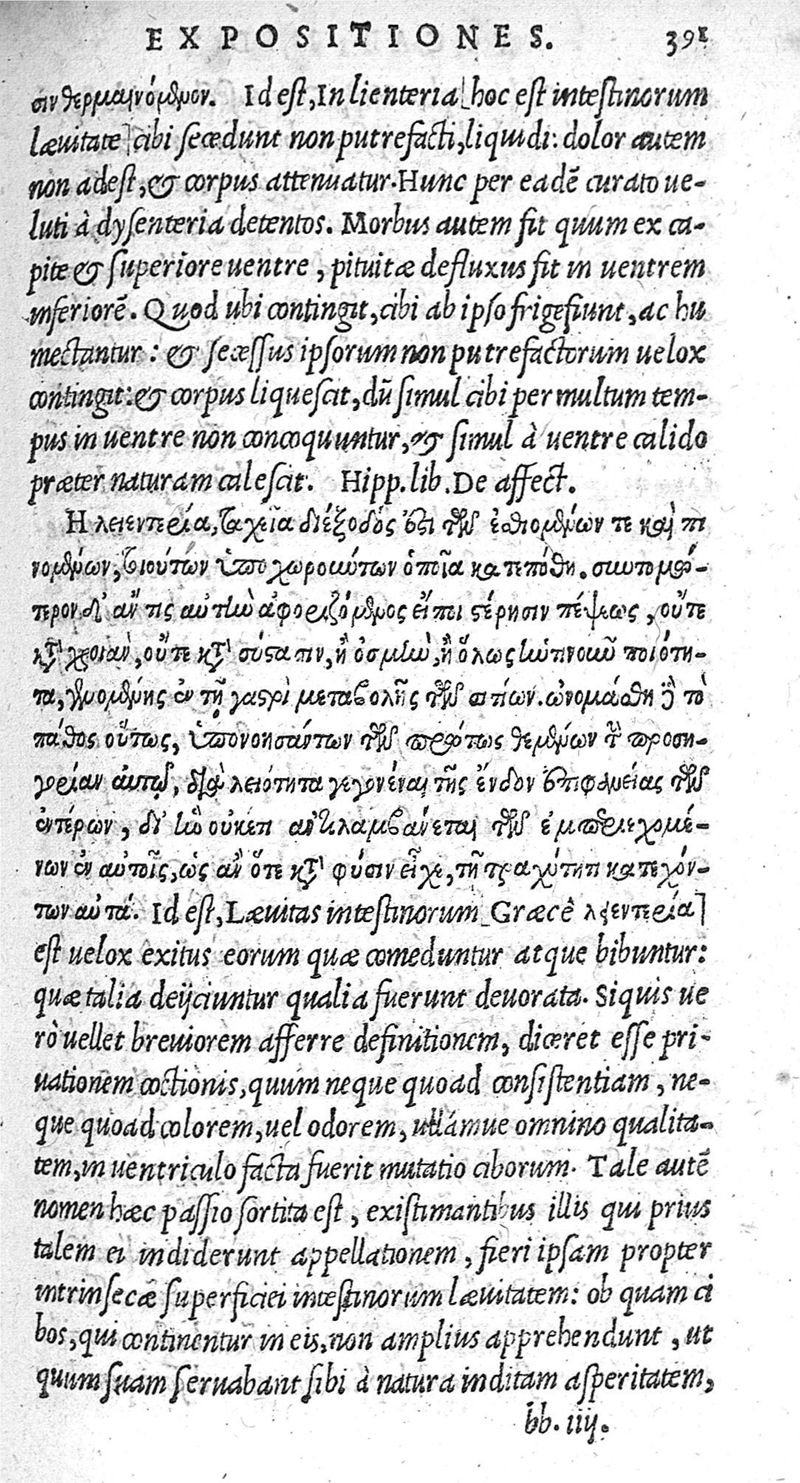 EXPOSITIONES. 391
σιν θερμαινόμενον. Id est, In lienteria [hoc est intestinorum
læuitate] cibi secedunt non putrefacti, liquidi: dolor autem
non adest, & corpus attenuatur. Hunc per eadē curato ue-
luti à dysenteria detentos. Morbus autem fit quum ex ca-
pite & superiore uentre, pituitæ defluxus fit in uentrem
inferiorē. Quod ubi contingit, cibi ab ipso frigefiunt, ac hu
mectantur: & secessus ipsorum non putrefactorum uelox
contingit: & corpus liquescit, dū simul cibi per multum tem-
pus in uentre non concoquuntur, & simul à uentre calido
præter naturam calescit. Hipp. lib. De affect.
Η λειεντερία, ταχεῖα διέξοδός ἐστι τῶν ἐσθιομένων τε καὶ πι
νομένων, τοιούτων ὑποχωρούντων ὁποῖα κατεπόθη. συντομώ-
τερον δ' ἄν τις αὐτὴν ἀφοριζόμενος εἴποι στέρησιν πέψεως, οὔτε
κατὰ χροιὰν, οὔτε κατὰ σύστασιν, ἢ ὀσμὴν, ἢ ὅλως ἡντινοῦν ποιότη-
τα, γενομένης ἐν τῇ γαστρὶ μεταβολῆς τῶν σιτίων. ὠνομάσθη δὲ τὸ
πάθος οὕτως, ὑπονοησάντων τῶν πρώτως θεμένων τὴν προση-
γορίαν αὐτῷ, διὰ λειότητα γεγονέναι τῆς ἔνδον ἐπιφανείας τῶν
ἐντέρων, δι' ἣν οὐκέτι ἀντιλαμβάνεται τῶν ἐμπεριεχομέ-
νων ἐν αὐτοῖς, ὡς ἂν ὅτε κατὰ φύσιν εἶχε, τῇ τραχύτητι κατεχόν-
των αὐτά. Id est, Læuitas intestinorum [Græcè λειεντερία]
est uelox exitus eorum quæ comeduntur atque bibuntur:
quæ talia deijciuntur qualia fuerunt deuorata. Siquis ue
rò uellet breuiorem afferre definitionem, diceret esse pri-
uationem coctionis, quum neque quoad consistentiam, ne-
que quoad colorem, uel odorem, ullámue omnino qualita-
tem, in uentriculo facta fuerit mutatio ciborum. Tale autē
nomen hæc passio sortita est, existimantibus illis qui prius
talem ei indiderunt appellationem, fieri ipsam propter
intrinsecæ superficiei intestinorum læuitatem: ob quam ci
bos, qui continentur in eis, non amplius apprehendunt, ut
quum suam seruabant sibi à natura inditam asperitatem,
bb. iiij.